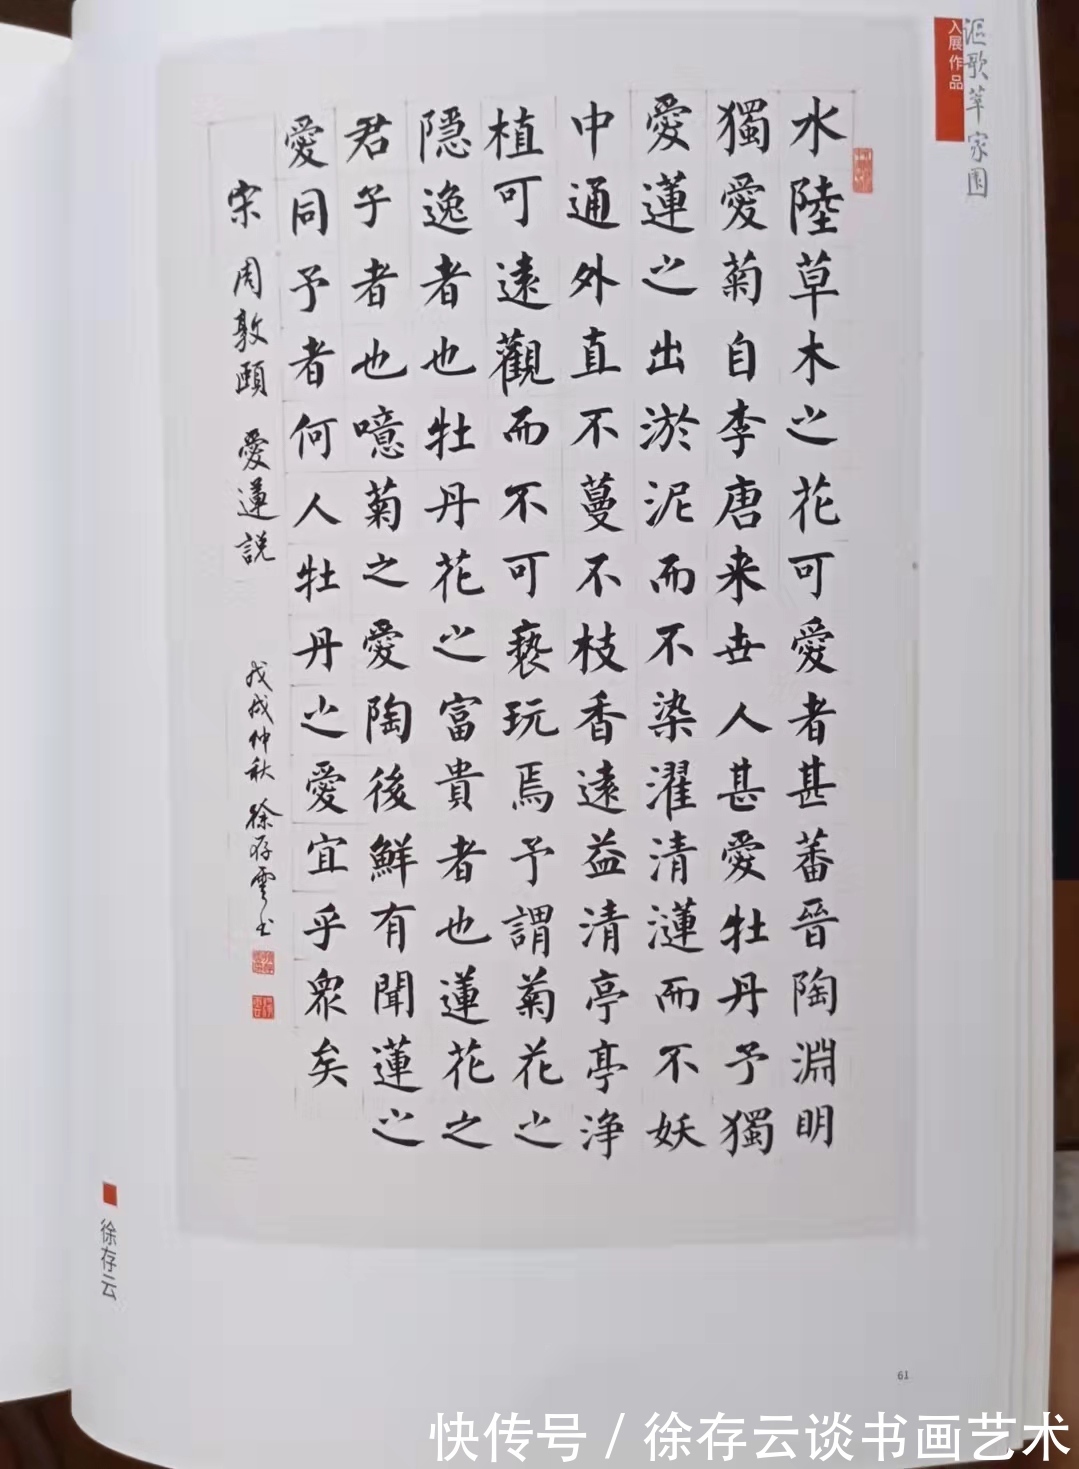 入展作品
水陸草木之花可愛者甚蕃晉陶淵明
獨愛菊自李唐来世人甚愛牡丹予獨
愛蓮之出淤泥而不染濯清漣而不妖
中通外直不蔓不枝香遠益清亭亭浄
植可遠觀而不可褻玩焉予謂菊花之
隱逸者也牡丹花之富貴者也蓮花之
君子者也噫菊之愛陶後鮮有聞蓮之
愛同予者何人牡丹之愛宜乎衆矣
宋 周敦頤 愛蓮説 戊戌仲秋 徐存雲书
徐存云
61
快传号 / 徐存云谈书画艺术